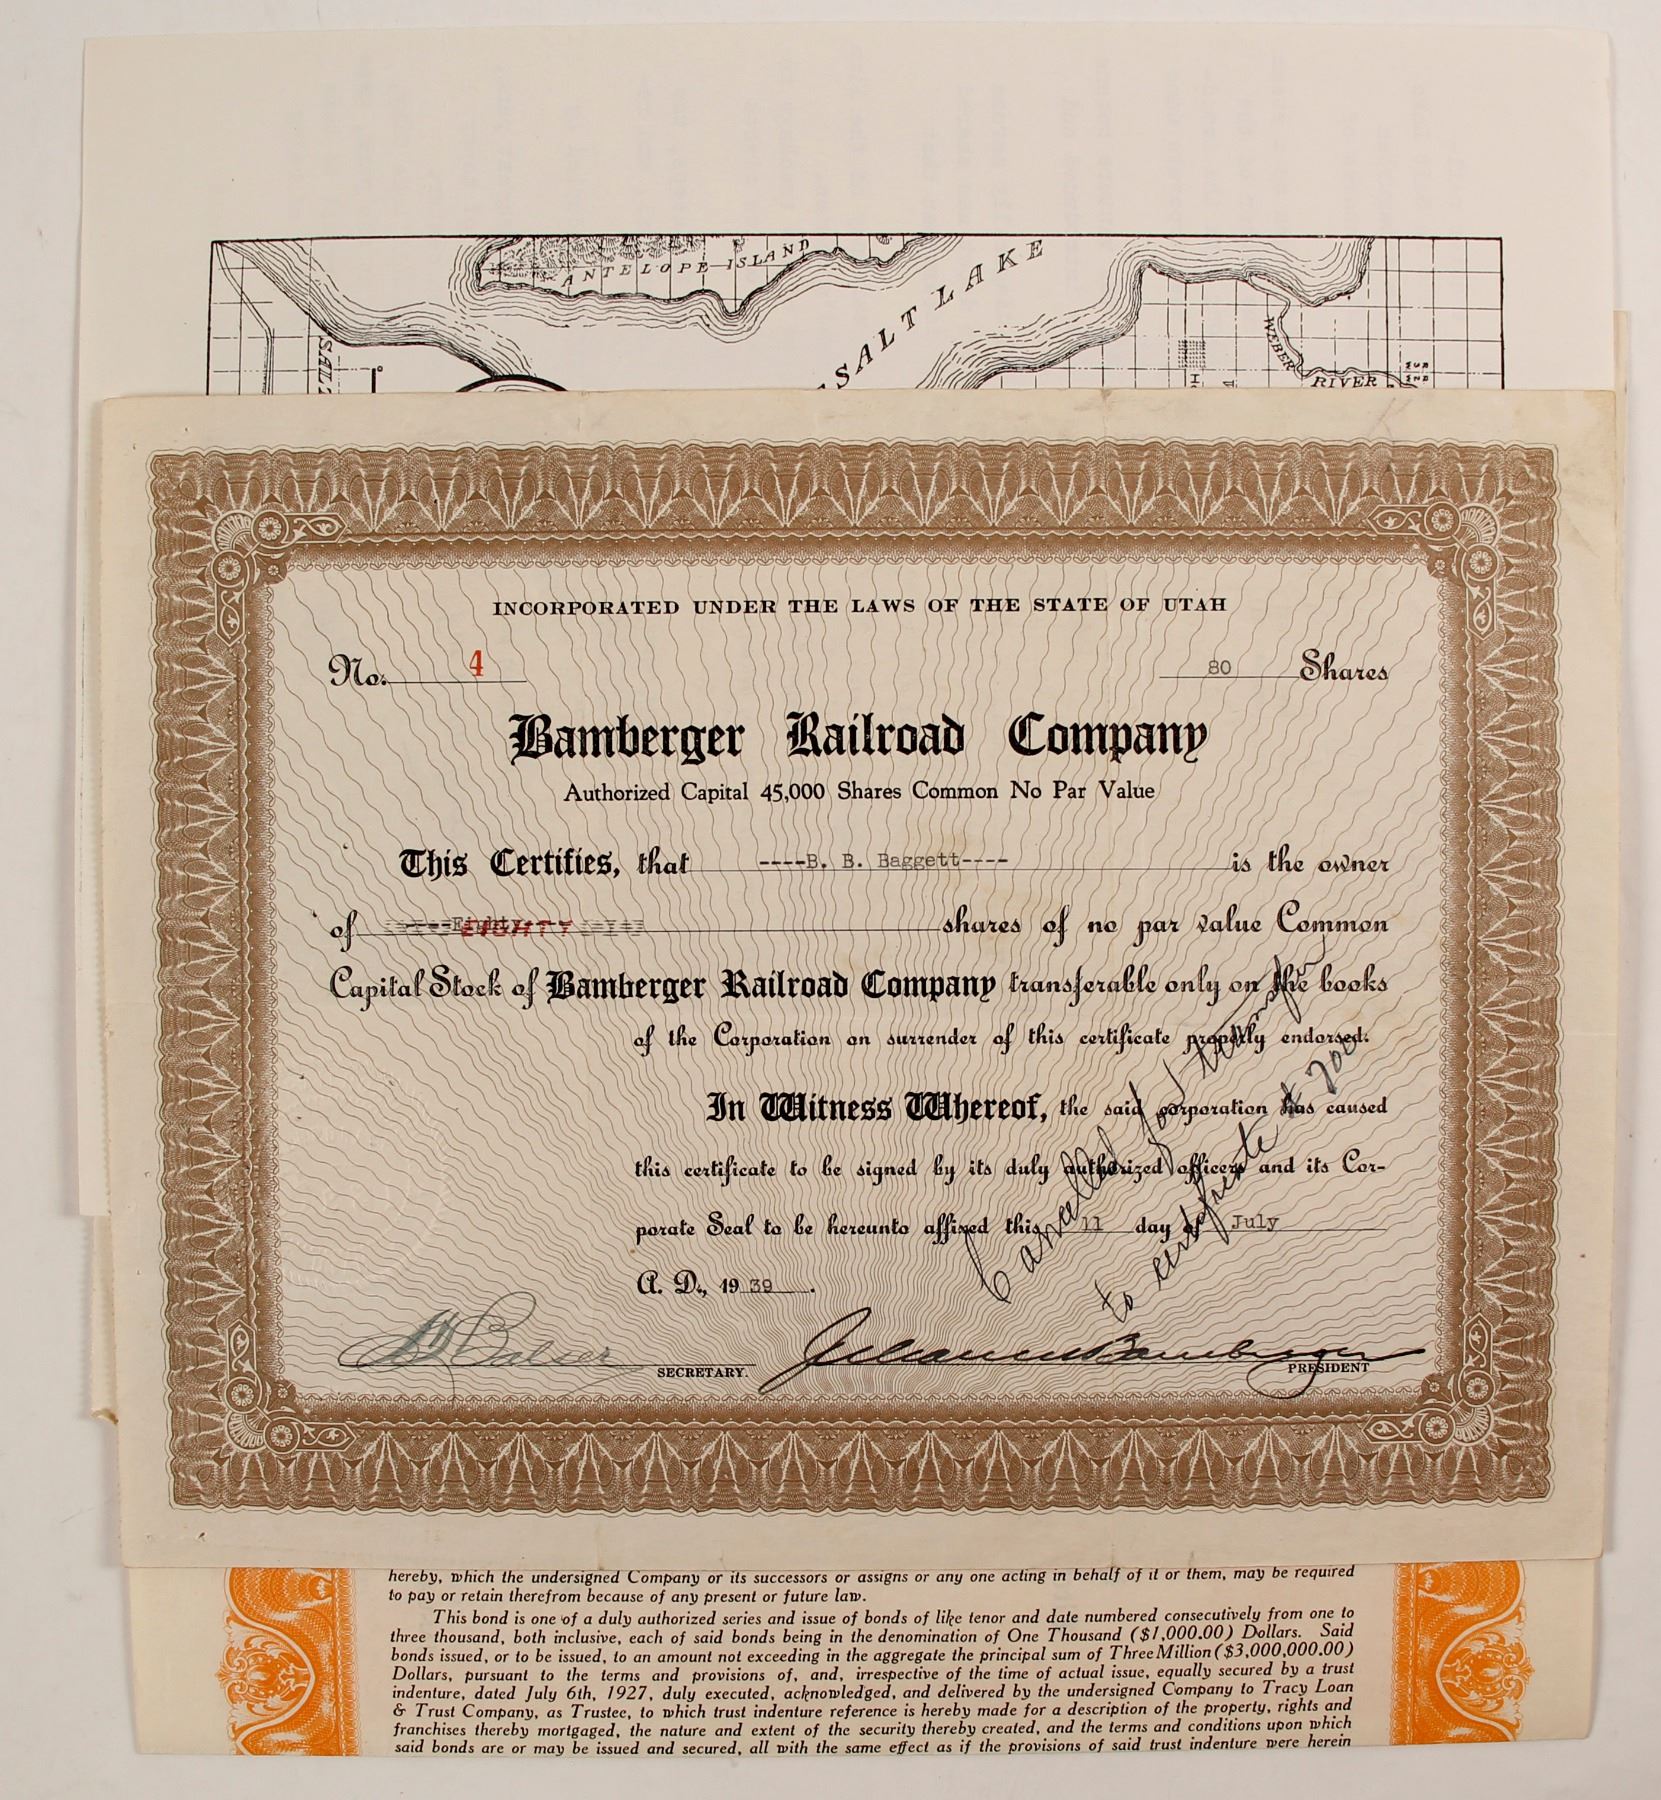 ANTELOPE ISLAND
SALT LAKE
WEBER
RIVER
INCORPORATED UNDER THE LAWS OF THE STATE OF UTAH
No. 4 80 Shares
Bamberger Railroad Company
Authorized Capital 45,000 Shares Common No Par Value
This Certifies, that ----B. B. Baggett---- is the owner
of Eighty EIGHTY shares of no par value Common
Capital Stock of Bamberger Railroad Company transferable only on the books
of the Corporation on surrender of this certificate properly endorsed.
In Witness Whereof, the said corporation has caused
this certificate to be signed by its duly authorized officers and its Cor-
porate Seal to be hereunto affixed this 11 day of July
A. D., 1939.
Cancelled for transfer
to certificate
SECRETARY. Julian M Bamberger PRESIDENT
hereby, which the undersigned Company or its successors or assigns or any one acting in behalf of it or them, may be required
to pay or retain therefrom because of any present or future law.
This bond is one of a duly authorized series and issue of bonds of like tenor and date numbered consecutively from one to
three thousand, both inclusive, each of said bonds being in the denomination of One Thousand ($1,000.00) Dollars. Said
bonds issued, or to be issued, to an amount not exceeding in the aggregate the principal sum of Three Million ($3,000,000.00)
Dollars, pursuant to the terms and provisions of, and, irrespective of the time of actual issue, equally secured by a trust
indenture, dated July 6th, 1927, duly executed, acknowledged, and delivered by the undersigned Company to Tracy Loan
& Trust Company, as Trustee, to which trust indenture reference is hereby made for a description of the property, rights and
franchises thereby mortgaged, the nature and extent of the security thereby created, and the terms and conditions upon which
said bonds are or may be issued and secured, all with the same effect as if the provisions of said trust indenture were herein